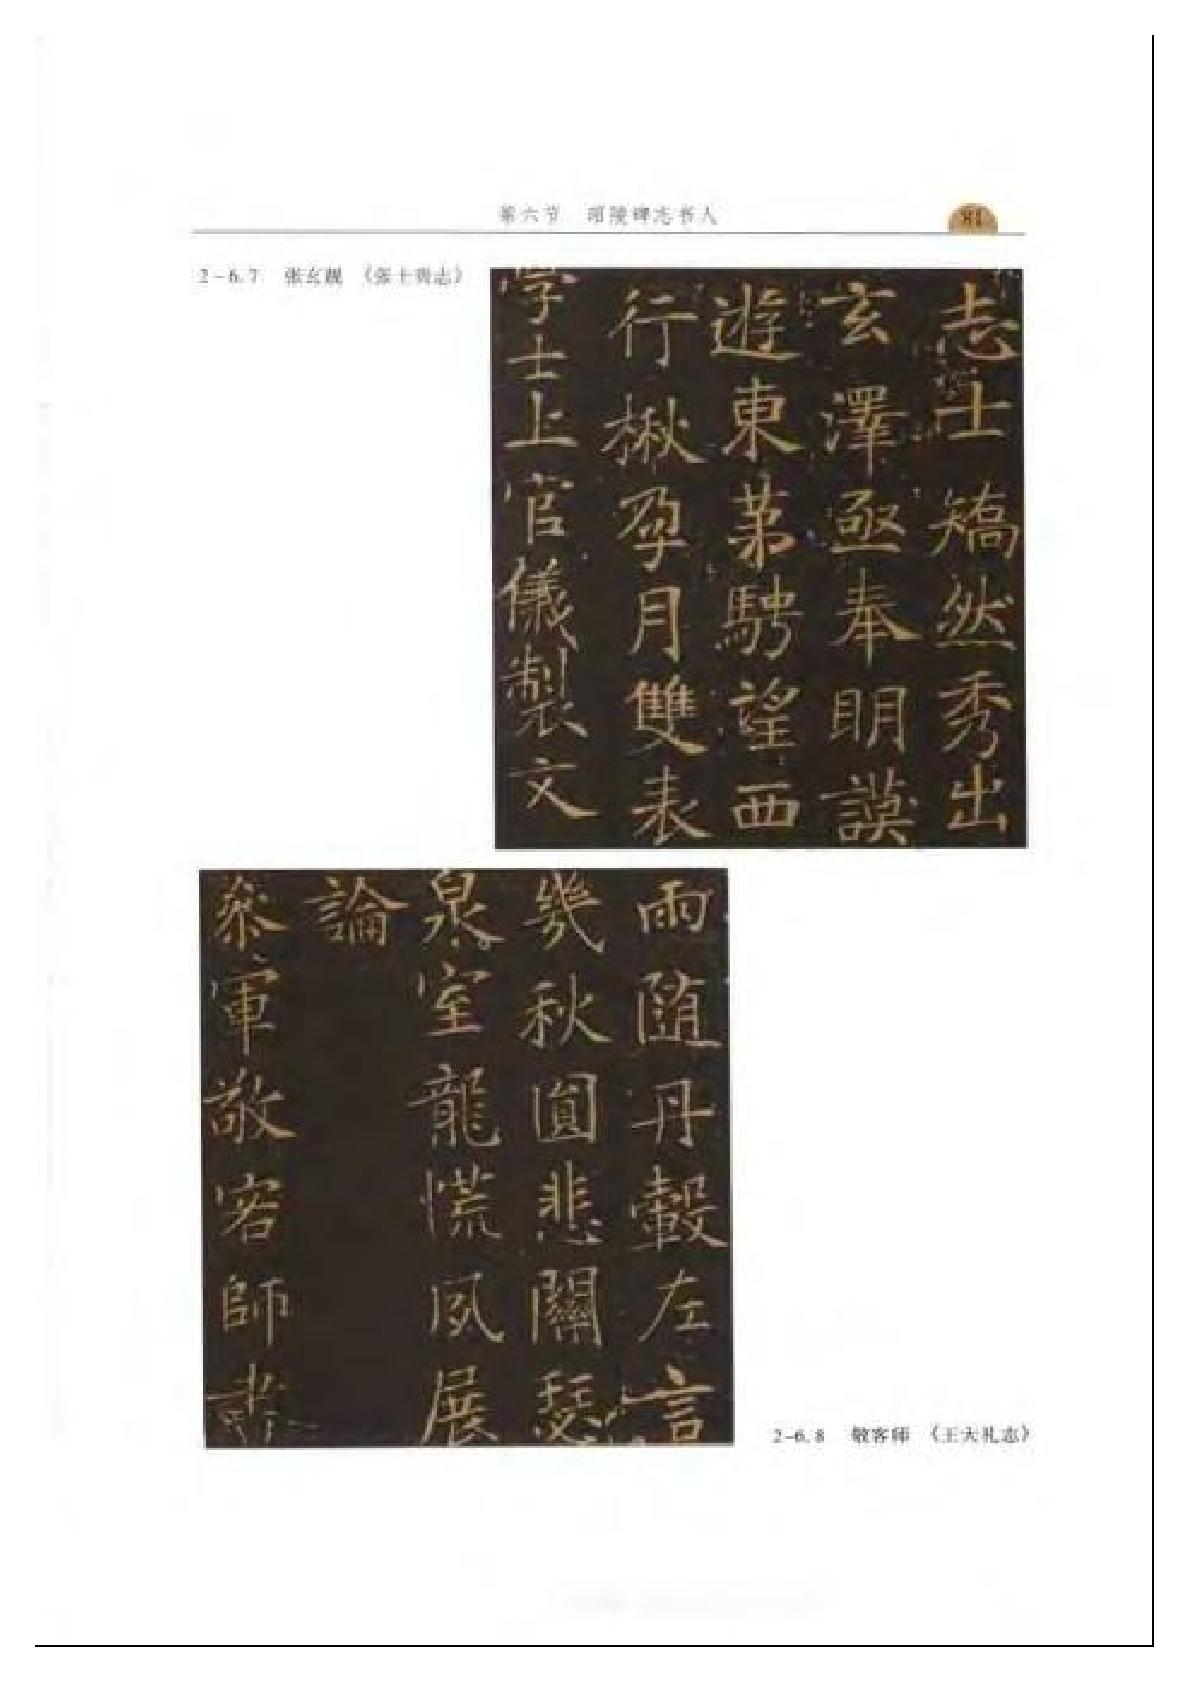 第六节 昭陵碑志书人
81
2-6.7 张玄靓 《张士贵志》
志士矯然秀出
玄澤亟奉明謨
遊東苐騁望西
行楸孕月雙表
學士上官儀製文
雨随丹轂左言
幾秋圓悲關瑟
泉室龍慌夙展
論
叅軍敬客師書
2-6.8 敬客师 《王大礼志》